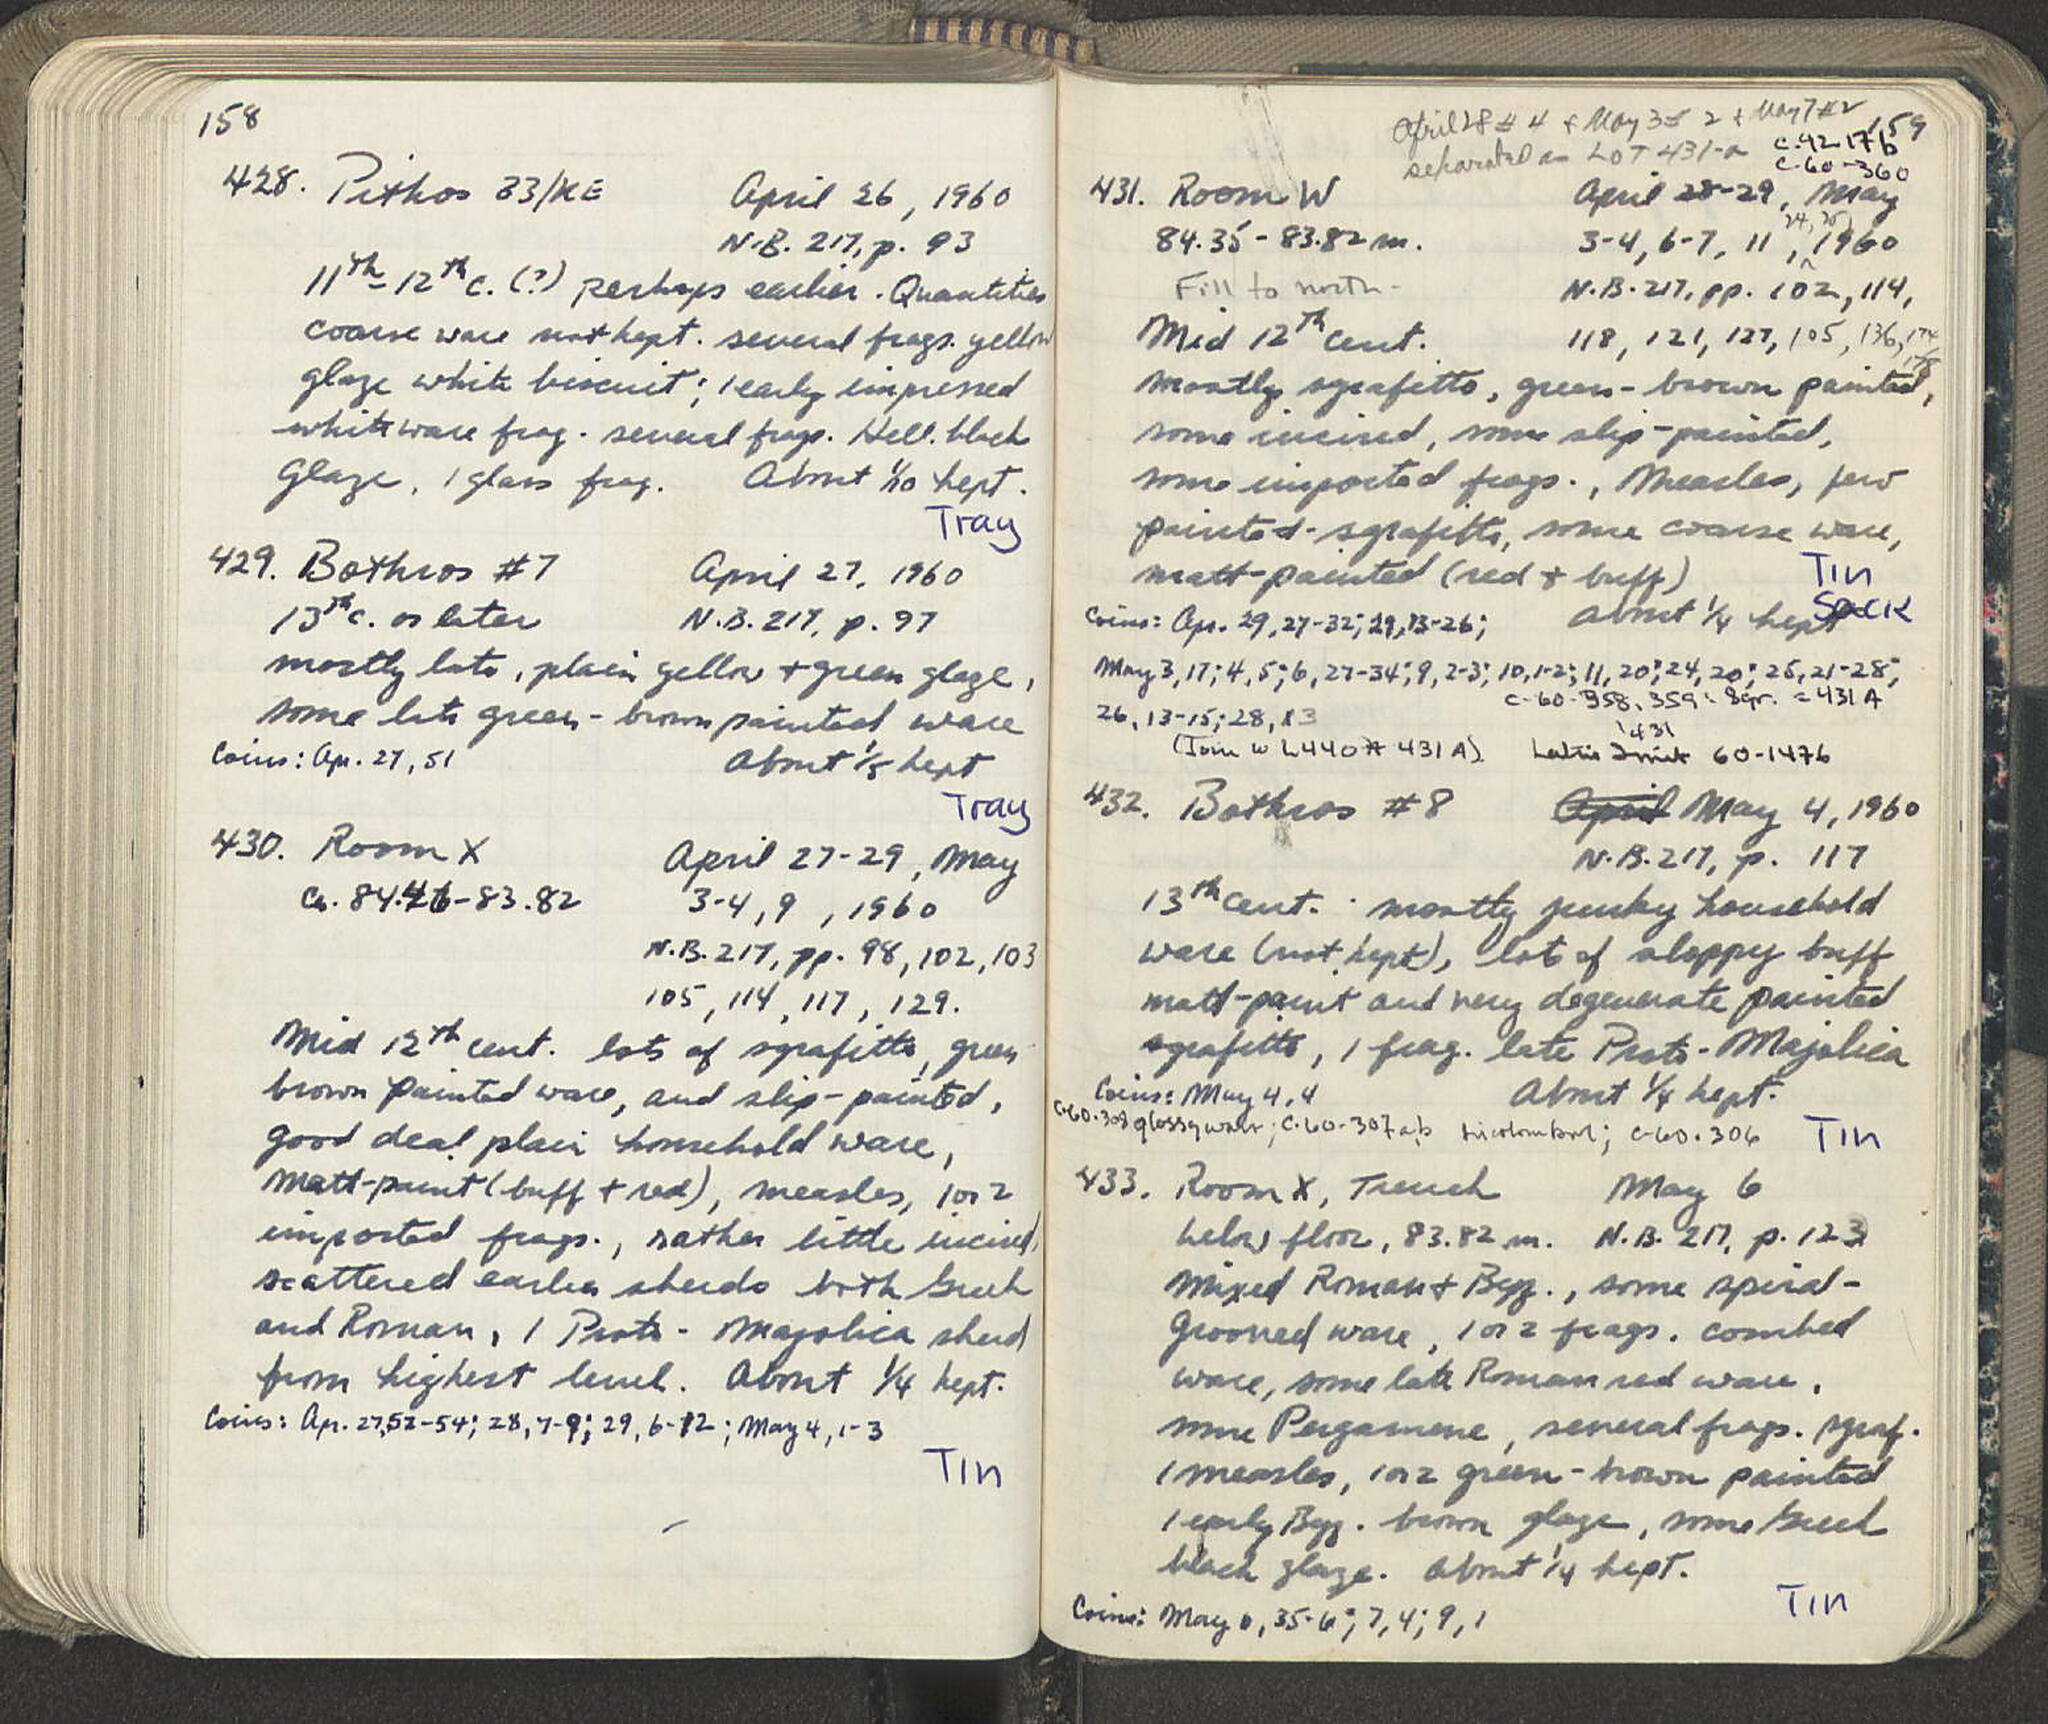 158
428. Pithos 83/KE April 26, 1960
N.B. 217, p. 93
11th - 12th c. (?) perhaps earlier. Quantities
coarse ware not kept. several frags. yellow
glaze white biscuit; 1 early impressed
white ware frag. several frags. Hell. black
glaze, 1 glass frag. About 1/10 kept.
Tray
429. Bothros #7 April 27, 1960
13th c. or later N.B. 217, p. 97
mostly late, plain yellow + green glaze,
some late green-brown painted ware
Coins: Apr. 27, 51 About 1/5 kept
Tray
430. Room X April 27-29, May
Ca. 84.46-83.82 3-4, 9, 1960
N.B. 217, pp. 98, 102, 103
105, 114, 117, 129.
Mid 12th cent. lots of sgrafitto, green
brown painted ware, and slip-painted,
good deal plain household ware,
Matt-paint (buff + red), measles, 1 or 2
imported frags., rather little incised,
scattered earlier sherds both Greek
and Roman, 1 Proto-Majolica sherd
from highest level. About 1/4 kept.
Coins: Apr. 27, 52-54; 28, 7-9; 29, 6-12; May 4, 1-3
Tin
April 28 # 4 + May 3 # 2 + May 7 # 2 159
separated as LOT 431-a C.42 176
C-60-360
431. Room W April 28-29, May
84.35-83.82 m. 3-4, 6-7, 11, 24, 25, 1960
Fill to north - N.B. 217, pp. 102, 114,
Mid 12th cent. 118, 121, 127, 105, 136, 174
178
Mostly sgrafitto, green-brown painted,
some incised, some slip-painted,
some imported frags., Measles, few
painted-sgrafitto, some coarse ware,
matt-painted (red + buff) Tin
Coins: Apr. 29, 27-32; 29, 13-26; About 1/4 kept Sack
May 3, 17; 4, 5; 6, 27-34; 9, 2-3; 10, 1-2; 11, 20; 24, 20; 25, 21-28;
C-60-358, 359: Sgr. = 431 A
26, 13-15; 28, 13
431
(Join w L440 + 431 A) Latin Imit 60-1476
432. Bothros #8 April May 4, 1960
N.B. 217, p. 117
13th cent. mostly junky household
ware (not kept), lots of sloppy buff
matt-paint and very degenerate painted
sgrafitto, 1 frag. late Proto-Majolica
Coins: May 4, 4 About 1/4 kept.
C-60-308 glossy ware; C-60-307 a/b tricolor bowl; C-60-306 Tin
433. Room X, Trench May 6
below floor, 83.82 m. N.B. 217, p. 123
Mixed Roman + Byz., some spiral-
grooved ware, 1 or 2 frags. combed
ware, some late Roman red ware,
some Pergamene, several frags. sgraf.
1 measles, 1 or 2 green-brown painted
1 early Byz. brown glaze, some Greek
black glaze. About 1/4 kept.
Tin
Coins: May 6, 35-6; 7, 4; 9, 1